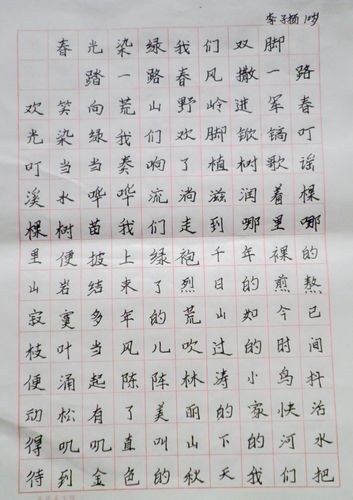 李子扬 10岁
春光染绿我们双脚
踏一路春风撒一路
欢笑向荒山野岭进军春
光染绿我们欢脚锨镐叮
叮当当奏响了植树歌谣
溪水哗哗流淌滋润着棵
棵树苗我们走到哪里哪
里便披上绿袍千年裸的
山岩结束了烈日的煎熬
寂寞多年的荒山如今已
枝叶当风儿吹过的时间
便涌起陈阵林涛小鸟抖
动松有了美丽的家快活
得叽叽直叫山下的河水
待到金色的秋天我们把